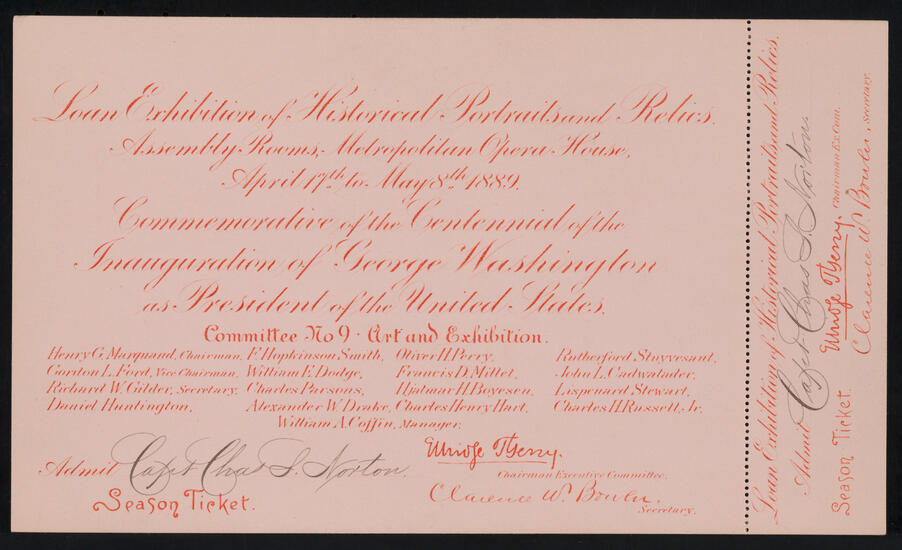 Loan Exhibition of Historical Portraits and Relics.
Assembly Rooms, Metropolitan Opera House,
April 17th to May 8th 1889.
Commemorative of the Centennial of the
Inauguration of George Washington
as President of the United States.
Committee No 9 - Art and Exhibition.
Henry G. Marquand, Chairman. F. Hopkinson Smith, Oliver H. Perry, Rutherford Stuyvesant,
Gordon L. Ford, Vice Chairman. William E. Dodge, Francis D. Millet, John L. Cadwalader,
Richard W. Gilder, Secretary. Charles Parsons, Hjalmar H. Boyesen, Lispenard Stewart,
Daniel Huntington, Alexander W. Drake, Charles Henry Hart, Charles H. Russell, Jr.
William A. Coffin, Manager.
Admit Capt Chas S. Norton
Season Ticket.
Elbridge T. Gerry.
Chairman Executive Committee.
Clarence W. Bowen.
Secretary.
Loan Exhibition of Historical Portraits and Relics.
Admit Capt Chas S. Norton
Elbridge T. Gerry. Chairman Ex. Com.
Clarence W. Bowen, Secretary.
Season Ticket